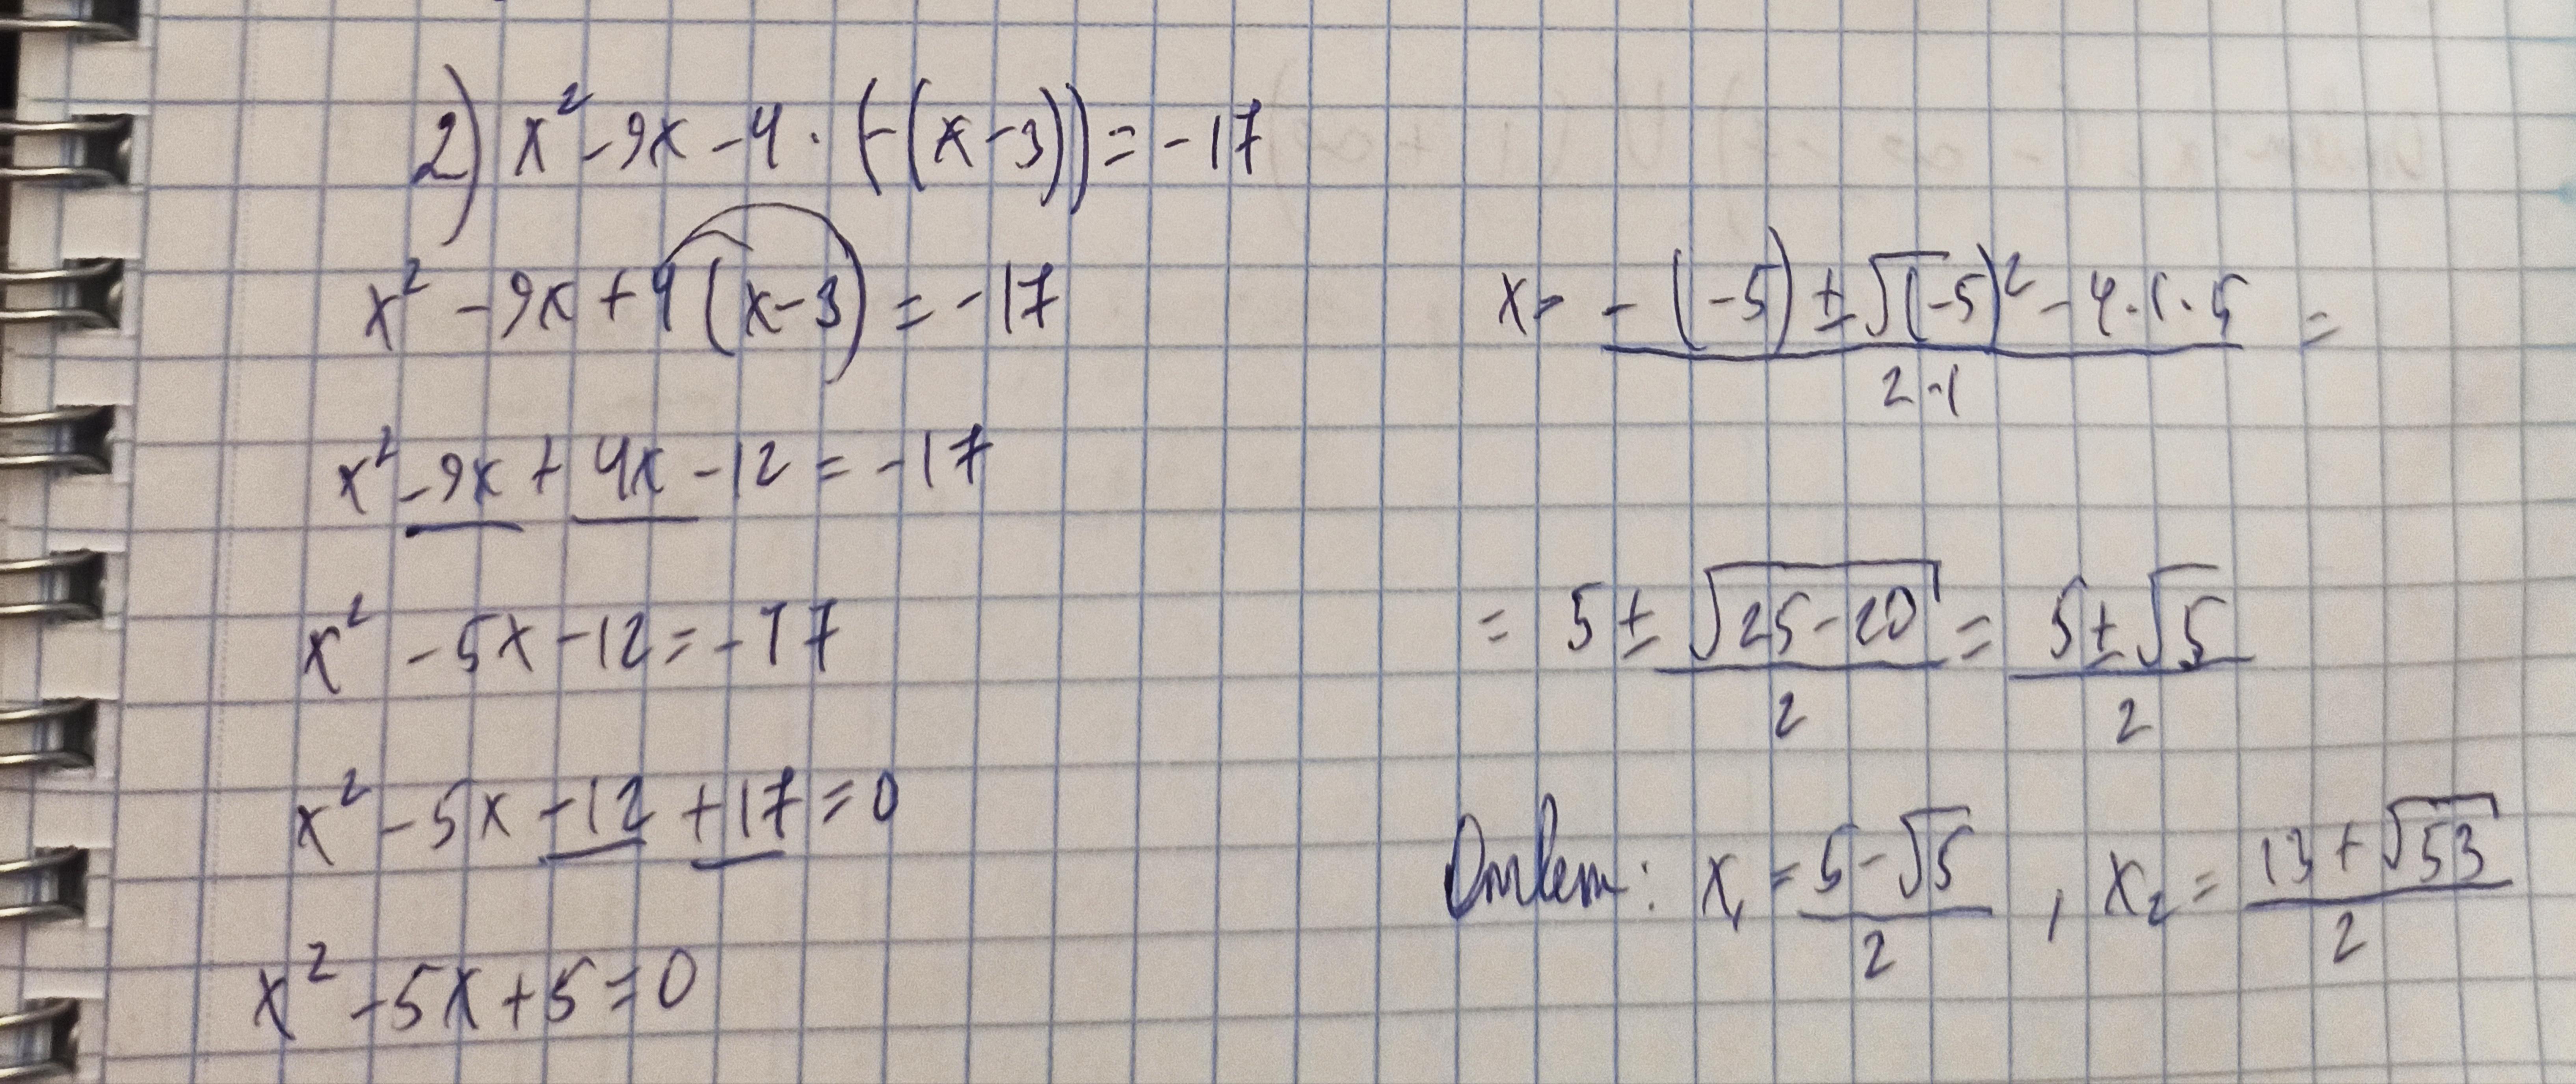 2) x² - 9x - 4 · (-(x - 3)) = -17
x² - 9x + 4(x - 3) = -17
x² - 9x + 4x - 12 = -17
x² - 5x - 12 = -17
x² - 5x - 12 + 17 = 0
x² - 5x + 5 = 0
x = (-(-5) ± √(-5)² - 4 · 1 · 5) / (2 · 1) =
= (5 ± √(25 - 20)) / 2 = (5 ± √5) / 2
Ответ: x₁ = (5 - √5) / 2 , x₂ = (13 + √53) / 2